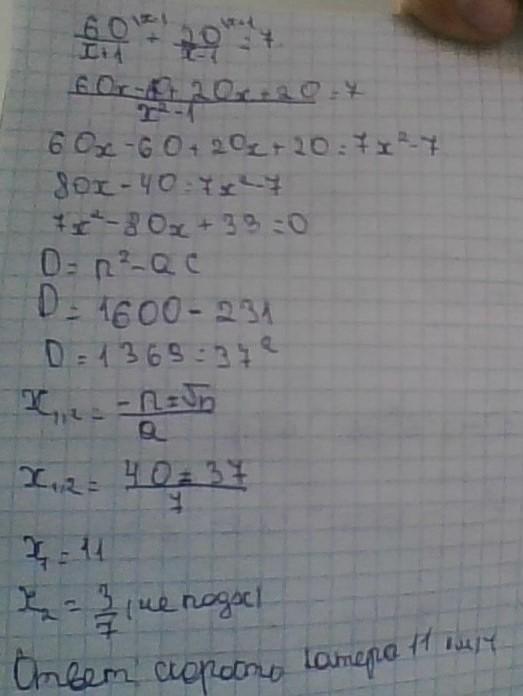 60\x-1 / x+1 + 20\x+1 / x-1 = 7
60x-60+20x+20 / x²-1 = 7
60x-60+20x+20=7x²-7
80x-40=7x²-7
7x²-80x+33=0
D=n²-ac
D=1600-231
D=1369=37²
x₁,₂= -n±√D / a
x₁,₂= 40±37 / 7
x₁=11
x₂= 3/7 (не подх)
Ответ: скорость катера 11 км/ч